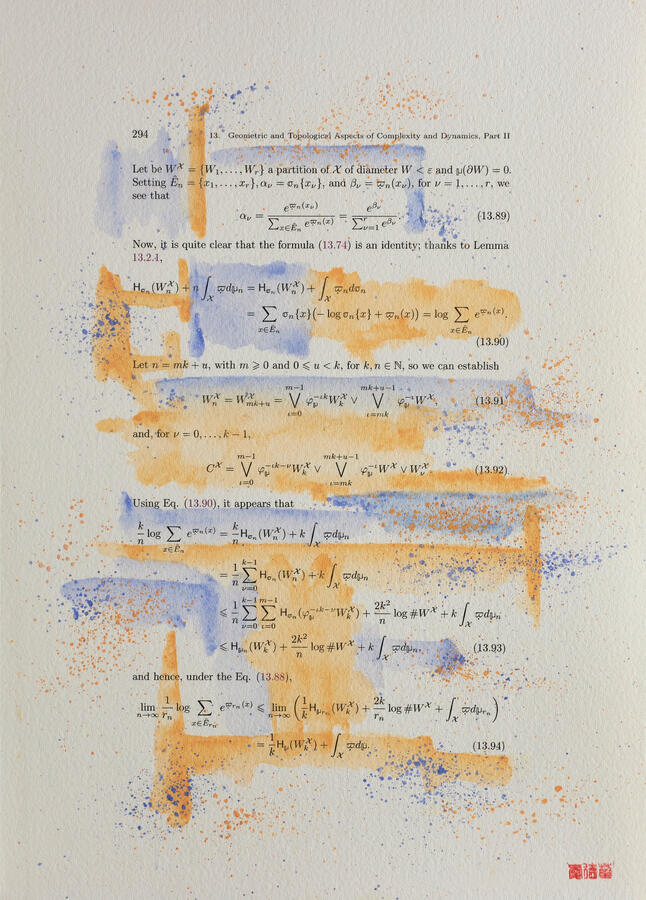 294 13. Geometric and Topological Aspects of Complexity and Dynamics, Part II
Let be W^𝒳 = {W₁, . . . , W_r} a partition of 𝒳 of diameter W < ε and μ(∂W) = 0.
Setting Ê_n = {x₁, . . . , x_r}, α_ν = σ_n{x_ν}, and β_ν = ϖ_n(x_ν), for ν = 1, . . . , r, we
see that
α_ν = e^{ϖ_n(x_ν)} / ∑_{x∈Ê_n} e^{ϖ_n(x)} = e^{β_ν} / ∑_{ν=1}^{r} e^{β_ν}. (13.89)
Now, it is quite clear that the formula (13.74) is an identity; thanks to Lemma
13.2.1,
H_{σ_n}(W_n^𝒳) + n ∫_𝒳 ϖdμ_n = H_{σ_n}(W_n^𝒳) + ∫_𝒳 ϖ_n dσ_n
= ∑_{x∈Ê_n} σ_n{x}(−log σ_n{x} + ϖ_n(x)) = log ∑_{x∈Ê_n} e^{ϖ_n(x)}.
(13.90)
Let n = mk + u, with m ⩾ 0 and 0 ⩽ u < k, for k, n ∈ ℕ, so we can establish
W_n^𝒳 = W_{mk+u}^𝒳 = ⋁_{ι=0}^{m−1} φ_μ^{−ιk} W_k^𝒳 ∨ ⋁_{ι=mk}^{mk+u−1} φ_μ^{−ι} W^𝒳, (13.91)
and, for ν = 0, . . . , k − 1,
C^𝒳 = ⋁_{ι=0}^{m−1} φ_μ^{−ιk−ν} W_k^𝒳 ∨ ⋁_{ι=mk}^{mk+u−1} φ_μ^{−ι} W^𝒳 ∨ W_ν^𝒳. (13.92)
Using Eq. (13.90), it appears that
k/n log ∑_{x∈Ê_n} e^{ϖ_n(x)} = k/n H_{σ_n}(W_n^𝒳) + k ∫_𝒳 ϖdμ_n
= 1/n ∑_{ν=0}^{k−1} H_{σ_n}(W_n^𝒳) + k ∫_𝒳 ϖdμ_n
⩽ 1/n ∑_{ν=0}^{k−1} ∑_{ι=0}^{m−1} H_{σ_n}(φ_μ^{−ιk−ν} W_k^𝒳) + 2k²/n log #W^𝒳 + k ∫_𝒳 ϖdμ_n
⩽ H_{μ_n}(W_k^𝒳) + 2k²/n log #W^𝒳 + k ∫_𝒳 ϖdμ_n, (13.93)
and hence, under the Eq. (13.88),
lim_{n→∞} 1/r_n log ∑_{x∈Ê_{r_n}} e^{ϖ_{r_n}(x)} ⩽ lim_{n→∞} (1/k H_{μ_{r_n}}(W_k^𝒳) + 2k/r_n log #W^𝒳 + ∫_𝒳 ϖdμ_{r_n})
= 1/k H_μ(W_k^𝒳) + ∫_𝒳 ϖdμ. (13.94)